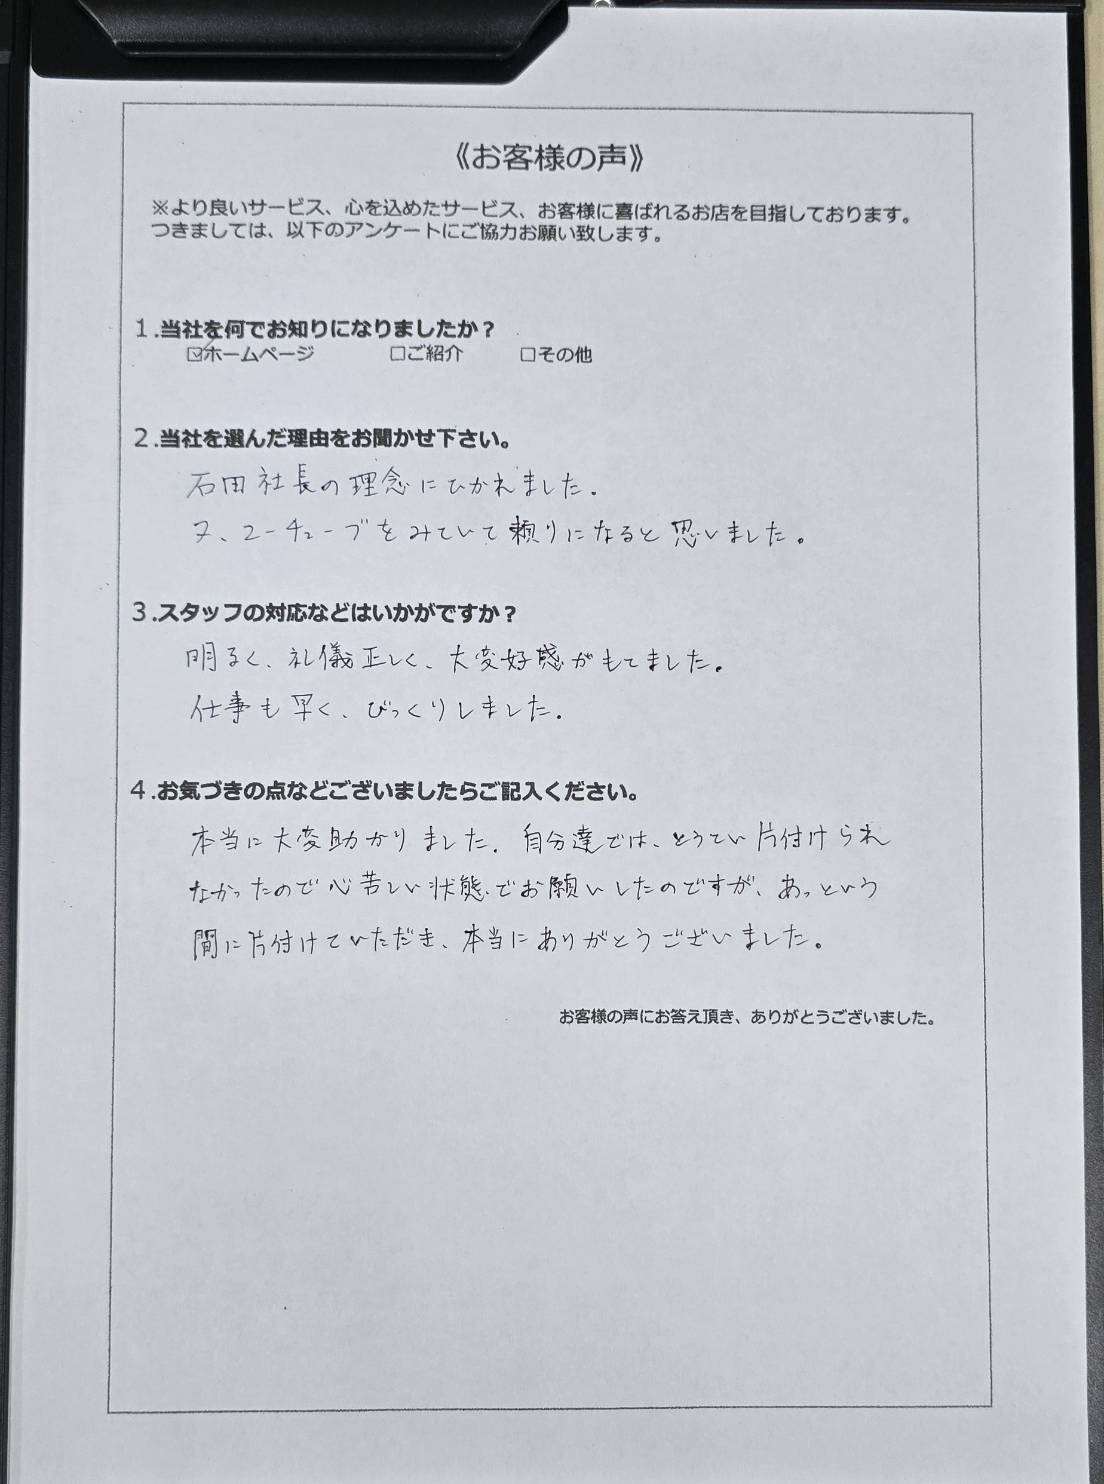 《お客様の声》
※より良いサービス、心を込めたサービス、お客様に喜ばれるお店を目指しております。
つきましては、以下のアンケートにご協力お願い致します。
１.当社を何でお知りになりましたか？
☑ホームページ　□ご紹介　□その他
２.当社を選んだ理由をお聞かせ下さい。
石田社長の理念にひかれました.
又、ユーチューブをみていて頼りになると思いました。
３.スタッフの対応などはいかがですか？
明るく、礼儀正しく、大変好感がもてました。
仕事も早く、びっくりしました.
４.お気づきの点などございましたらご記入ください。
本当に大変助かりました. 自分達では、とうてい片付けられ
なかったので心苦しい状態でお願いしたのですが、あっという
間に片付けていただき、本当にありがとうございました。
お客様の声にお答え頂き、ありがとうございました。